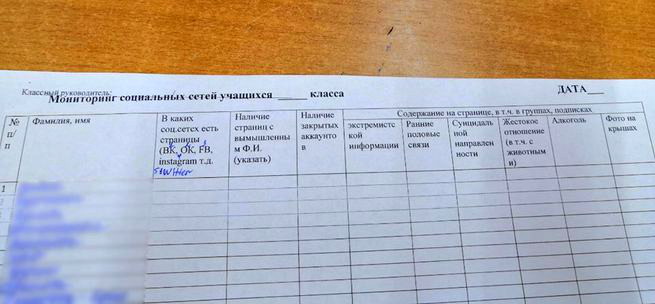 Классный руководитель:
Мониторинг социальных сетей учащихся _____ класса ДАТА___
№ п/п
Фамилия, имя
В каких
соц.сетех есть
страницы
(ВК, ОК, FB,
instagram т.д.
Наличие
страниц с
вымышленны
м Ф.И.
(указать)
Наличие
закрытых
аккаунто
в
Содержание на странице, в т.ч. в группах, подписках
экстремистс
кой
информации
Ранние
половые
связи
Суицидаль
ной
направлен
ности
Жестокое
отношение
(в т.ч. с
животным
и)
Алкоголь
Фото на
крышах
1
2